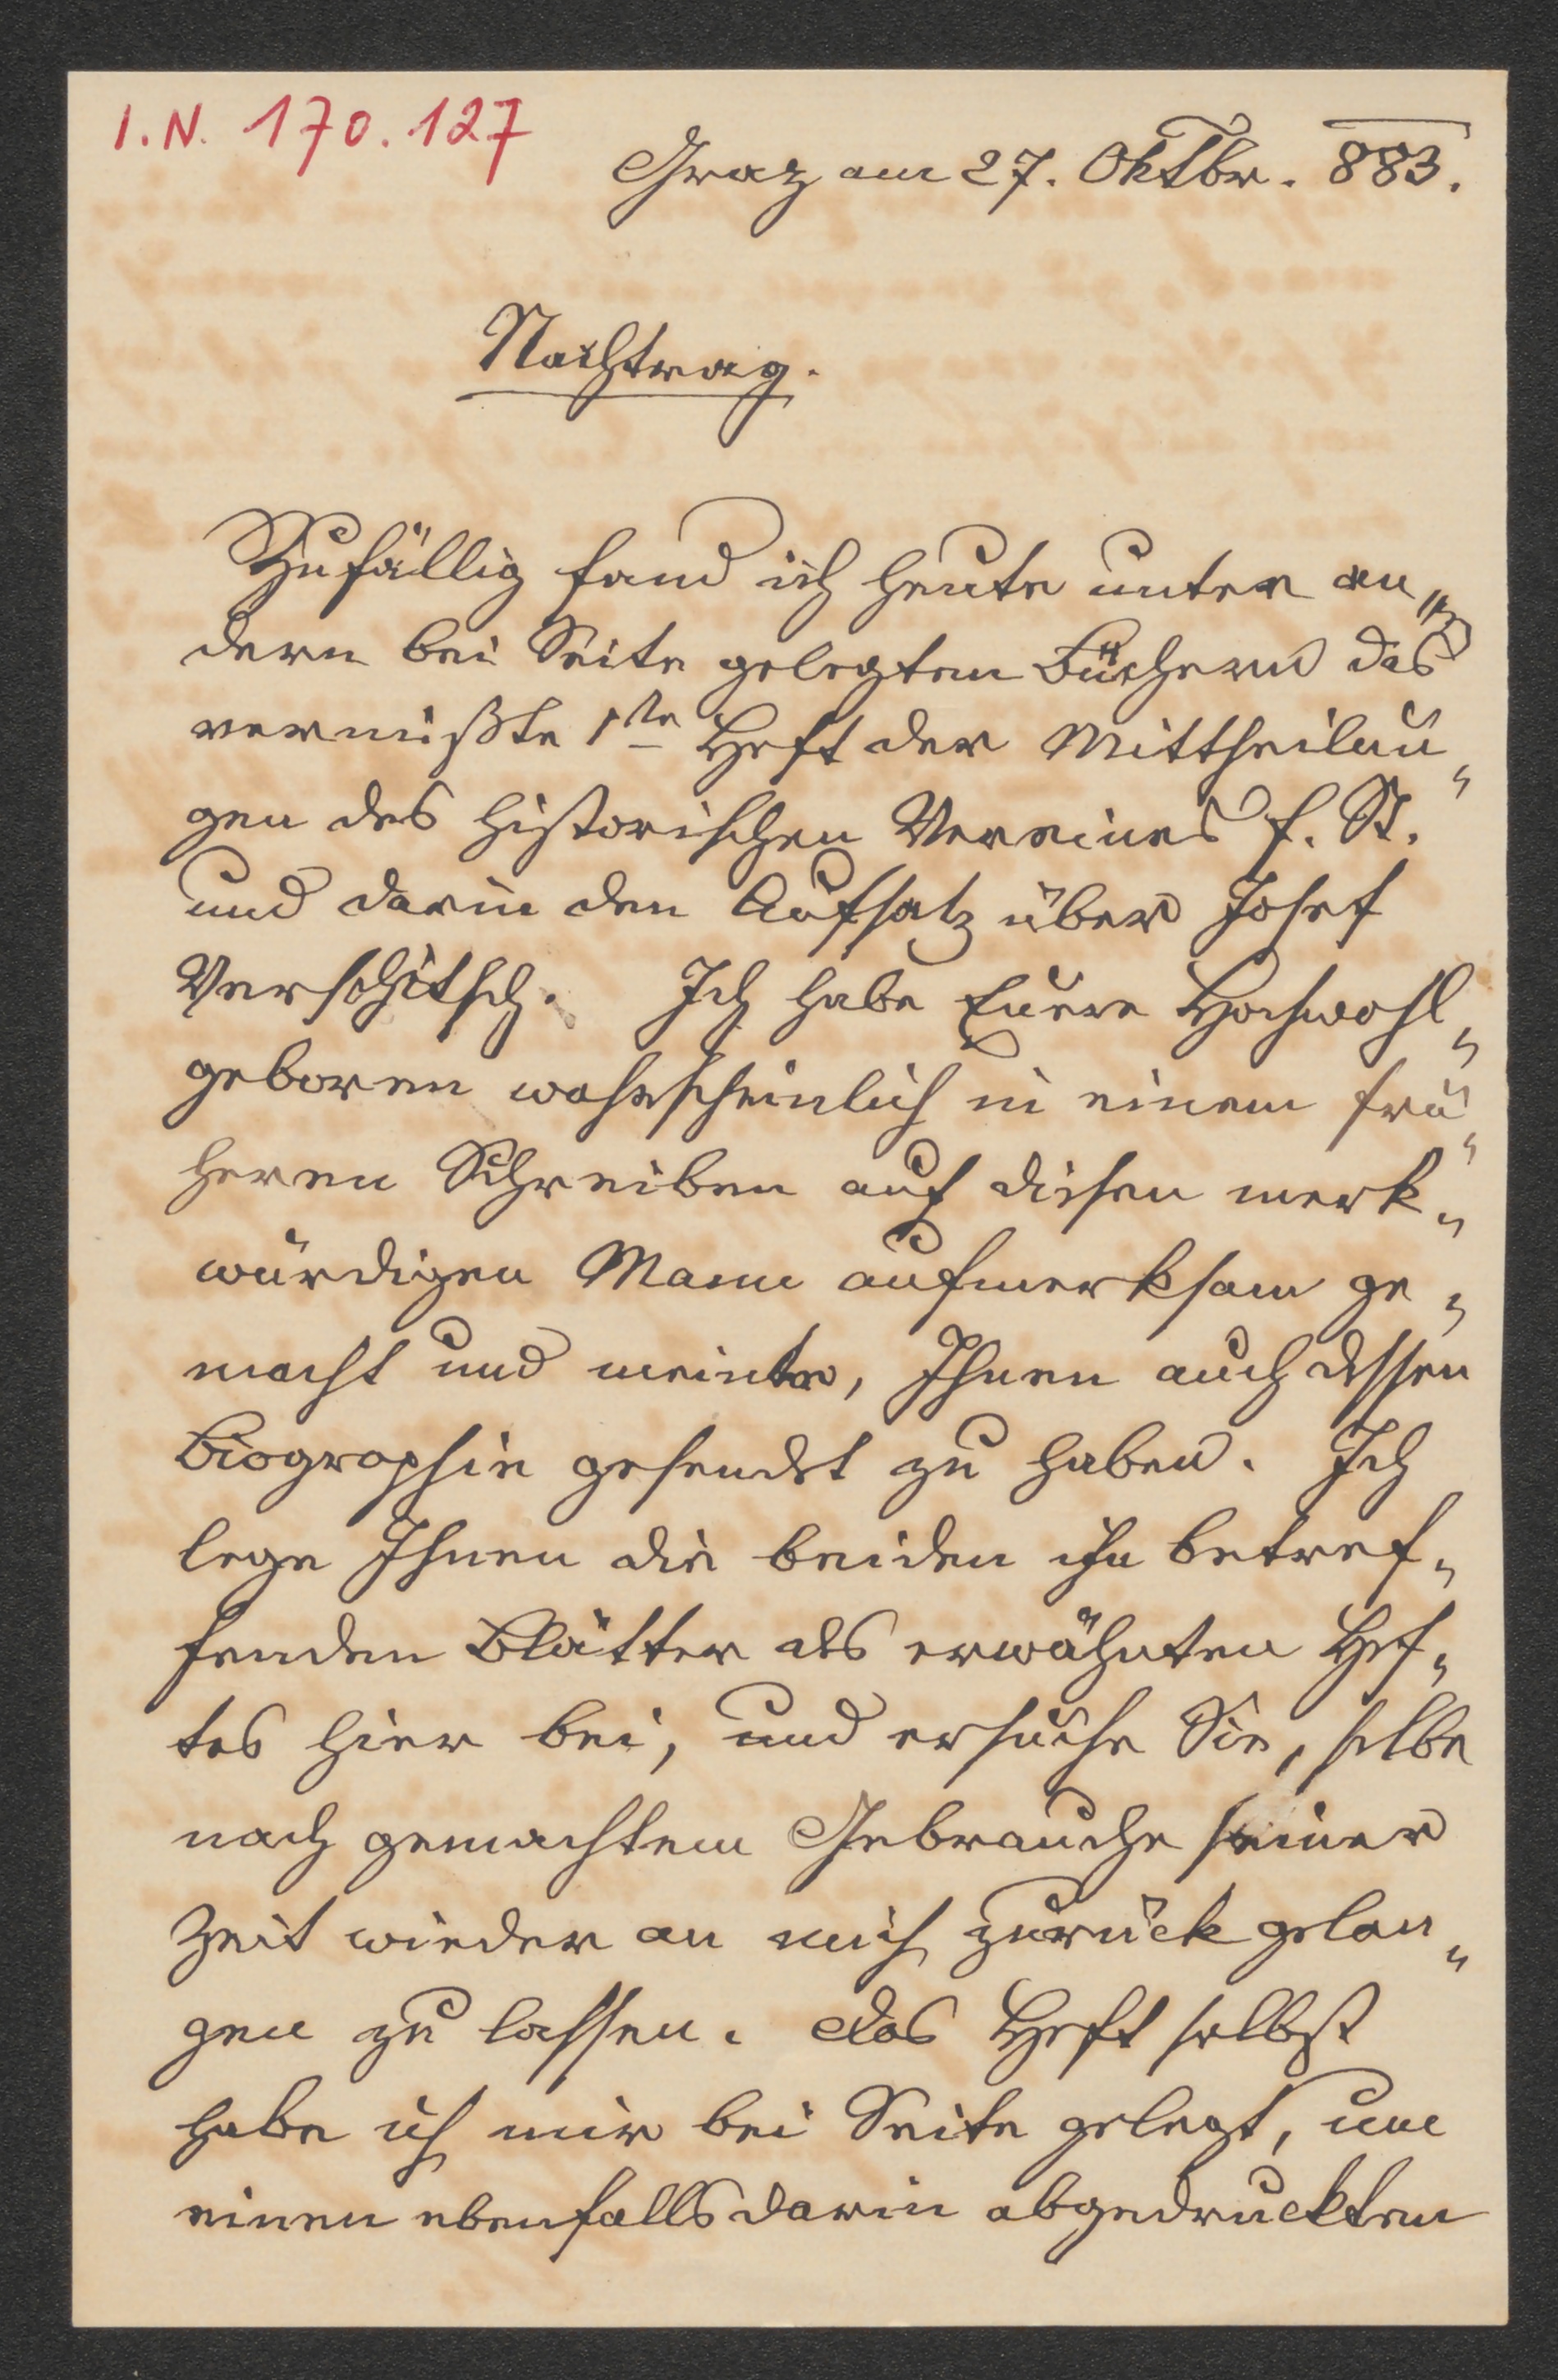 I.N. 170.127
Graz am 27. Oktbr. 883.
Nachtrag.
Zufällig fand ich heute unter an„
dern bei Seite gelegten Büchern das
vermißte 1te Heft der Mittheilun„
gen des historischen Vereines f. St.
und darin den Aufsatz über Josef
Verschitsch. Ich habe Euere Hochwohl„
geboren wahrscheinlich in einem frü„
heren Schreiben auf diesen merk„
würdigen Mann aufmerksam ge„
macht und meinte, Ihnen auch dessen
Biographie gesendet zu haben. Ich
lege Ihnen die beiden ihn betref„
fenden Blätter des erwähnten Hef„
tes hier bei, und ersuche Sie, selbe
nach gemachtem Gebrauche seiner
Zeit wieder an mich zurück gelan„
gen zu lassen. Das Heft selbst
habe ich mir bei Seite gelegt, um
einen ebenfalls darin abgedruckten